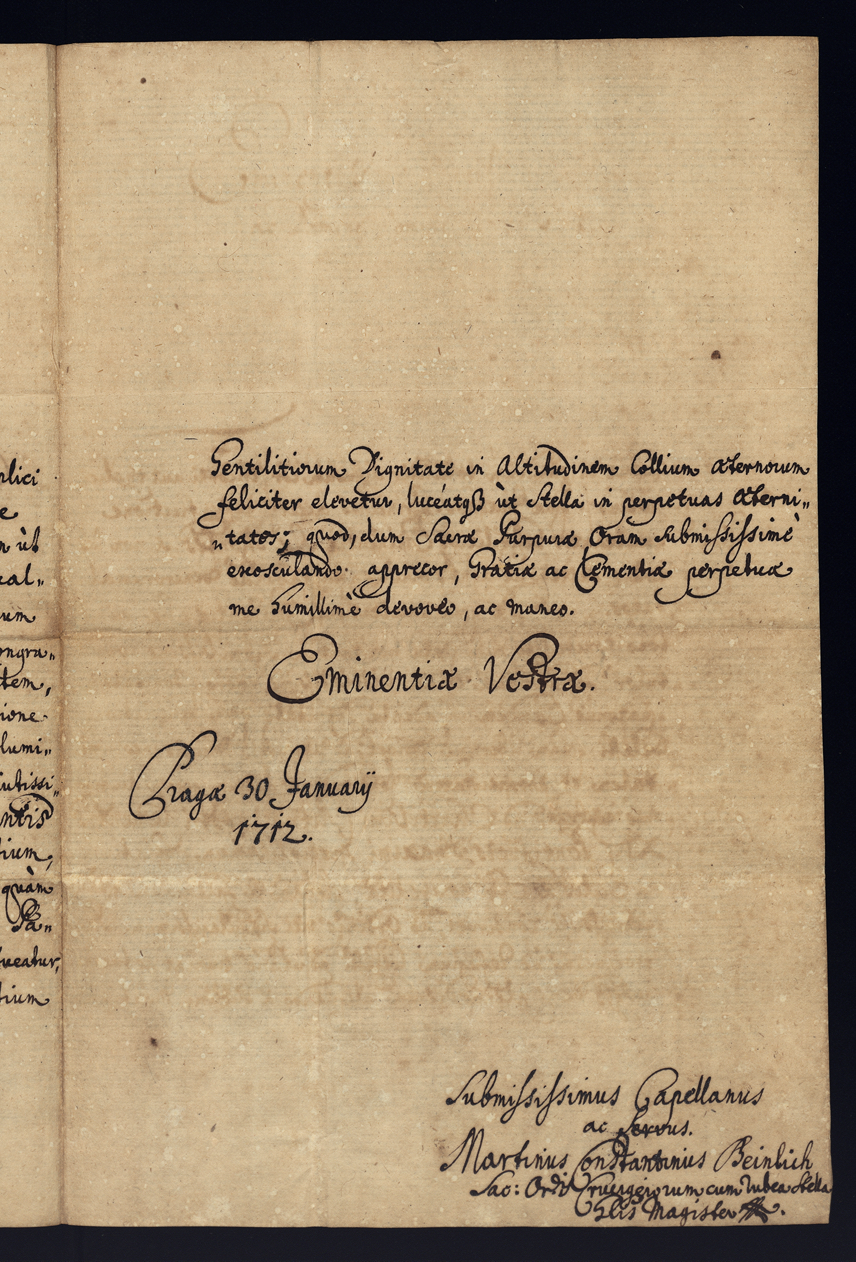 plici
e
m ùt
cal„
um
ongra„
tem,
ione
lumi„
ntis
tium,
quàm
Pa„
tueatur,
tium
Gentilitiorum Dignitate in Altitudinem Collium æternorum
feliciter elevetur, luceatqß ùt Stella in perpetuas æterni„
„tates; quod, dum Sacræ Purpuræ Oram submississimè
exosculando apprecor, Gratiæ ac Clementiæ perpetuæ
me humillimè devoveo, ac maneo.
Eminentiæ Vestræ.
Pragæ 30 Januarij
1712.
Submississimus Capellanus
ac Servus.
Martinus Constantinus Beinlich
Sac: Ord: Crucigerorum cum rubea Stella
Glis Magister